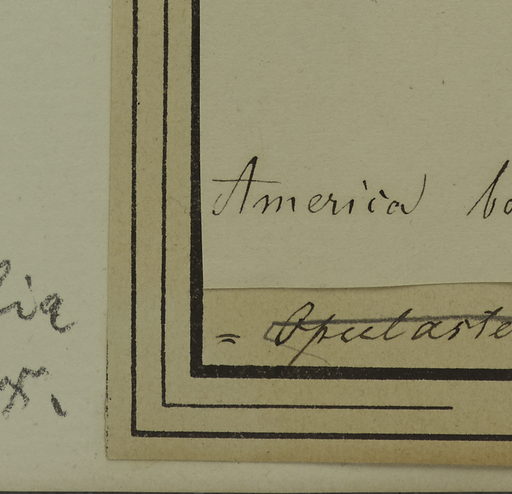 America bo
= Opulaste
lia
x.